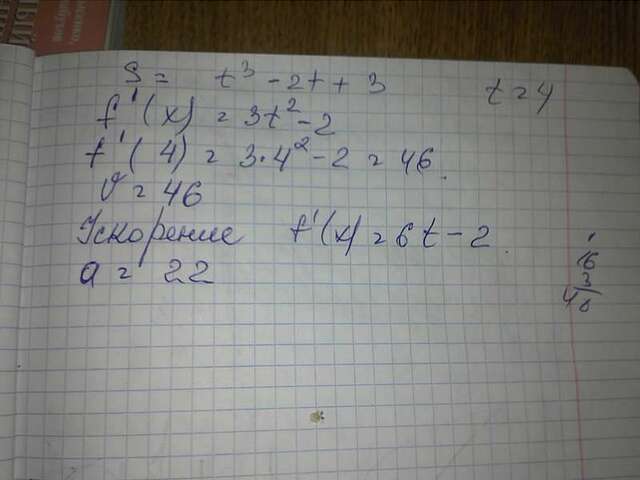 S = t³ - 2t + 3 t = 4
f'(x) = 3t² - 2
f'(4) = 3·4² - 2 = 46.
v = 46
Ускорение f'(x) = 6t - 2.
a = 22
1
16
3
48